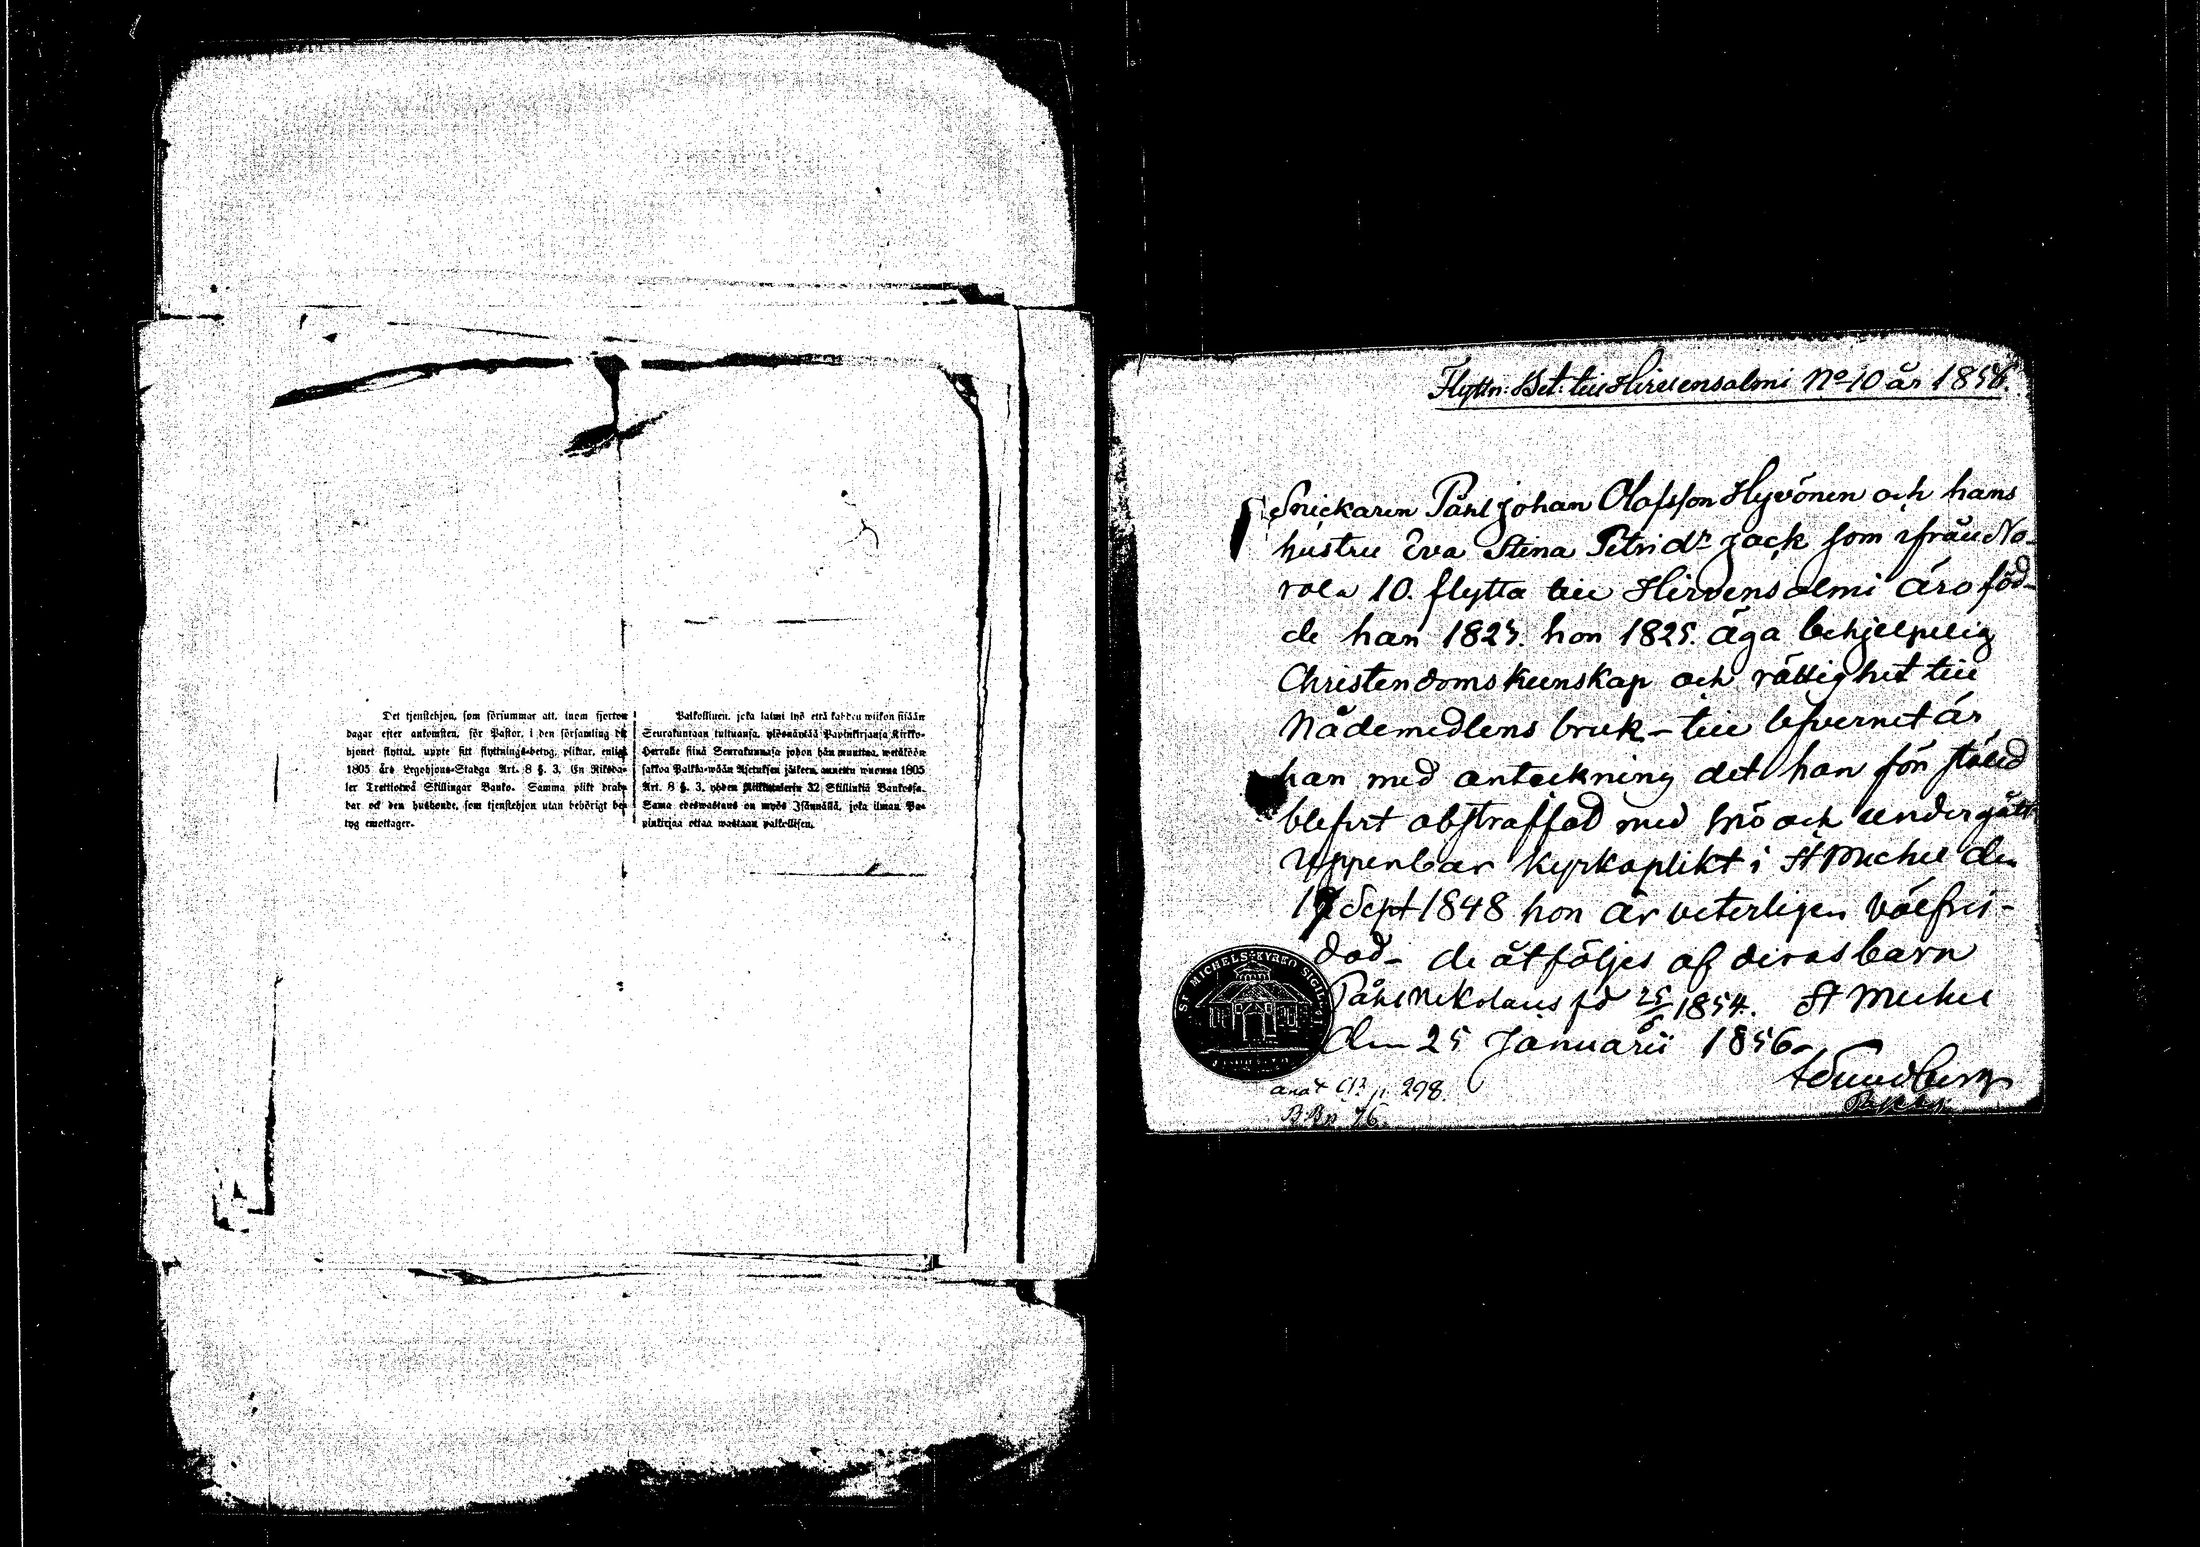 Det tjenstehjon, som försummar att, inom fjorton
dagar efter ankomsten, för Pastor, i den församling dit
hjonet flyttat, uppte sitt flyttnings-betyg, pliktar, enligt
1805 års Legohjons-Stadga Art. 8 §. 3, En Riksda-
ler Trettiotwå Skillingar Banko. Samma plikt drab-
bar ock den husbonde, som tjenstehjon utan behörigt be-
tyg emottager.
Palkollinen, joka laimi lyö että kahden wiikon sisään
Seurakuntaan tultuansa, ylösnäyttää Papinkirjansa Kirkko-
Herralle siinä Seurakunnassa johon hän muuttaa, wetäköön
sakkoa Palkka-wään Asetuksen jälkeen, annettu wuonna 1805
Art. 8 §. 3, yhden Riikintalerin 32 Skillinkiä Bankossa.
Sama edeswastaus on myös Isännällä, joka ilman Pa-
pinkirjaa ottaa wastaan palkollisen.
Flyttn: Bet: till Hirvensalmi No 10 år 1856.
Snickaren Påhl Johan Olofsson Hyvönen och hans
hustru Eva Stina Petridr Jack som ifrån No-
rola 10. flytta till Hirvensalmi äro föd-
de han 1823. hon 1825. äga behjelpelig
Christendomskunskap och rättighet till
Nådemedlens bruk – till lefvernet är
han med anteckning det han för stöld
blifvit abstraffad med spö och undergått
uppenbar kyrkoplikt i St Michel den
17 Sept 1848 hon är veterligen välfräj-
dad – de åtföljes af deras barn
Påhl Nikolaus fö 25/5 1854. St Michel
den 25 Januarii 1856.
ST MICHELS KYRKO SIGILL
p. 298.